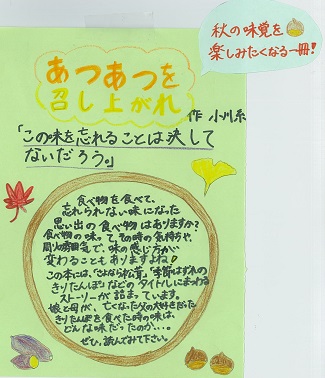 秋の味覚を
楽しみたくなる一冊!
あつあつを
召し上がれ
作 小川糸
「この味を忘れることは決して
ないだろう。」
食べ物を食べて、
忘れられない味になった
思い出の食べ物はありますか?
食べ物の味って、その時の気持ちや、
周りの雰囲気で、味の感じ方が
変わることもありますよね!
この本には、「さよなら松茸」、「季節はずれの
きりたんぽ」などのタイトルにまつわる
ストーリーが詰まっています。
娘と母が、亡くなった父の大好きだった
きりたんぽを食べた時の味は、
どんな味だったのか…。
ぜひ、読んでみて下さい。